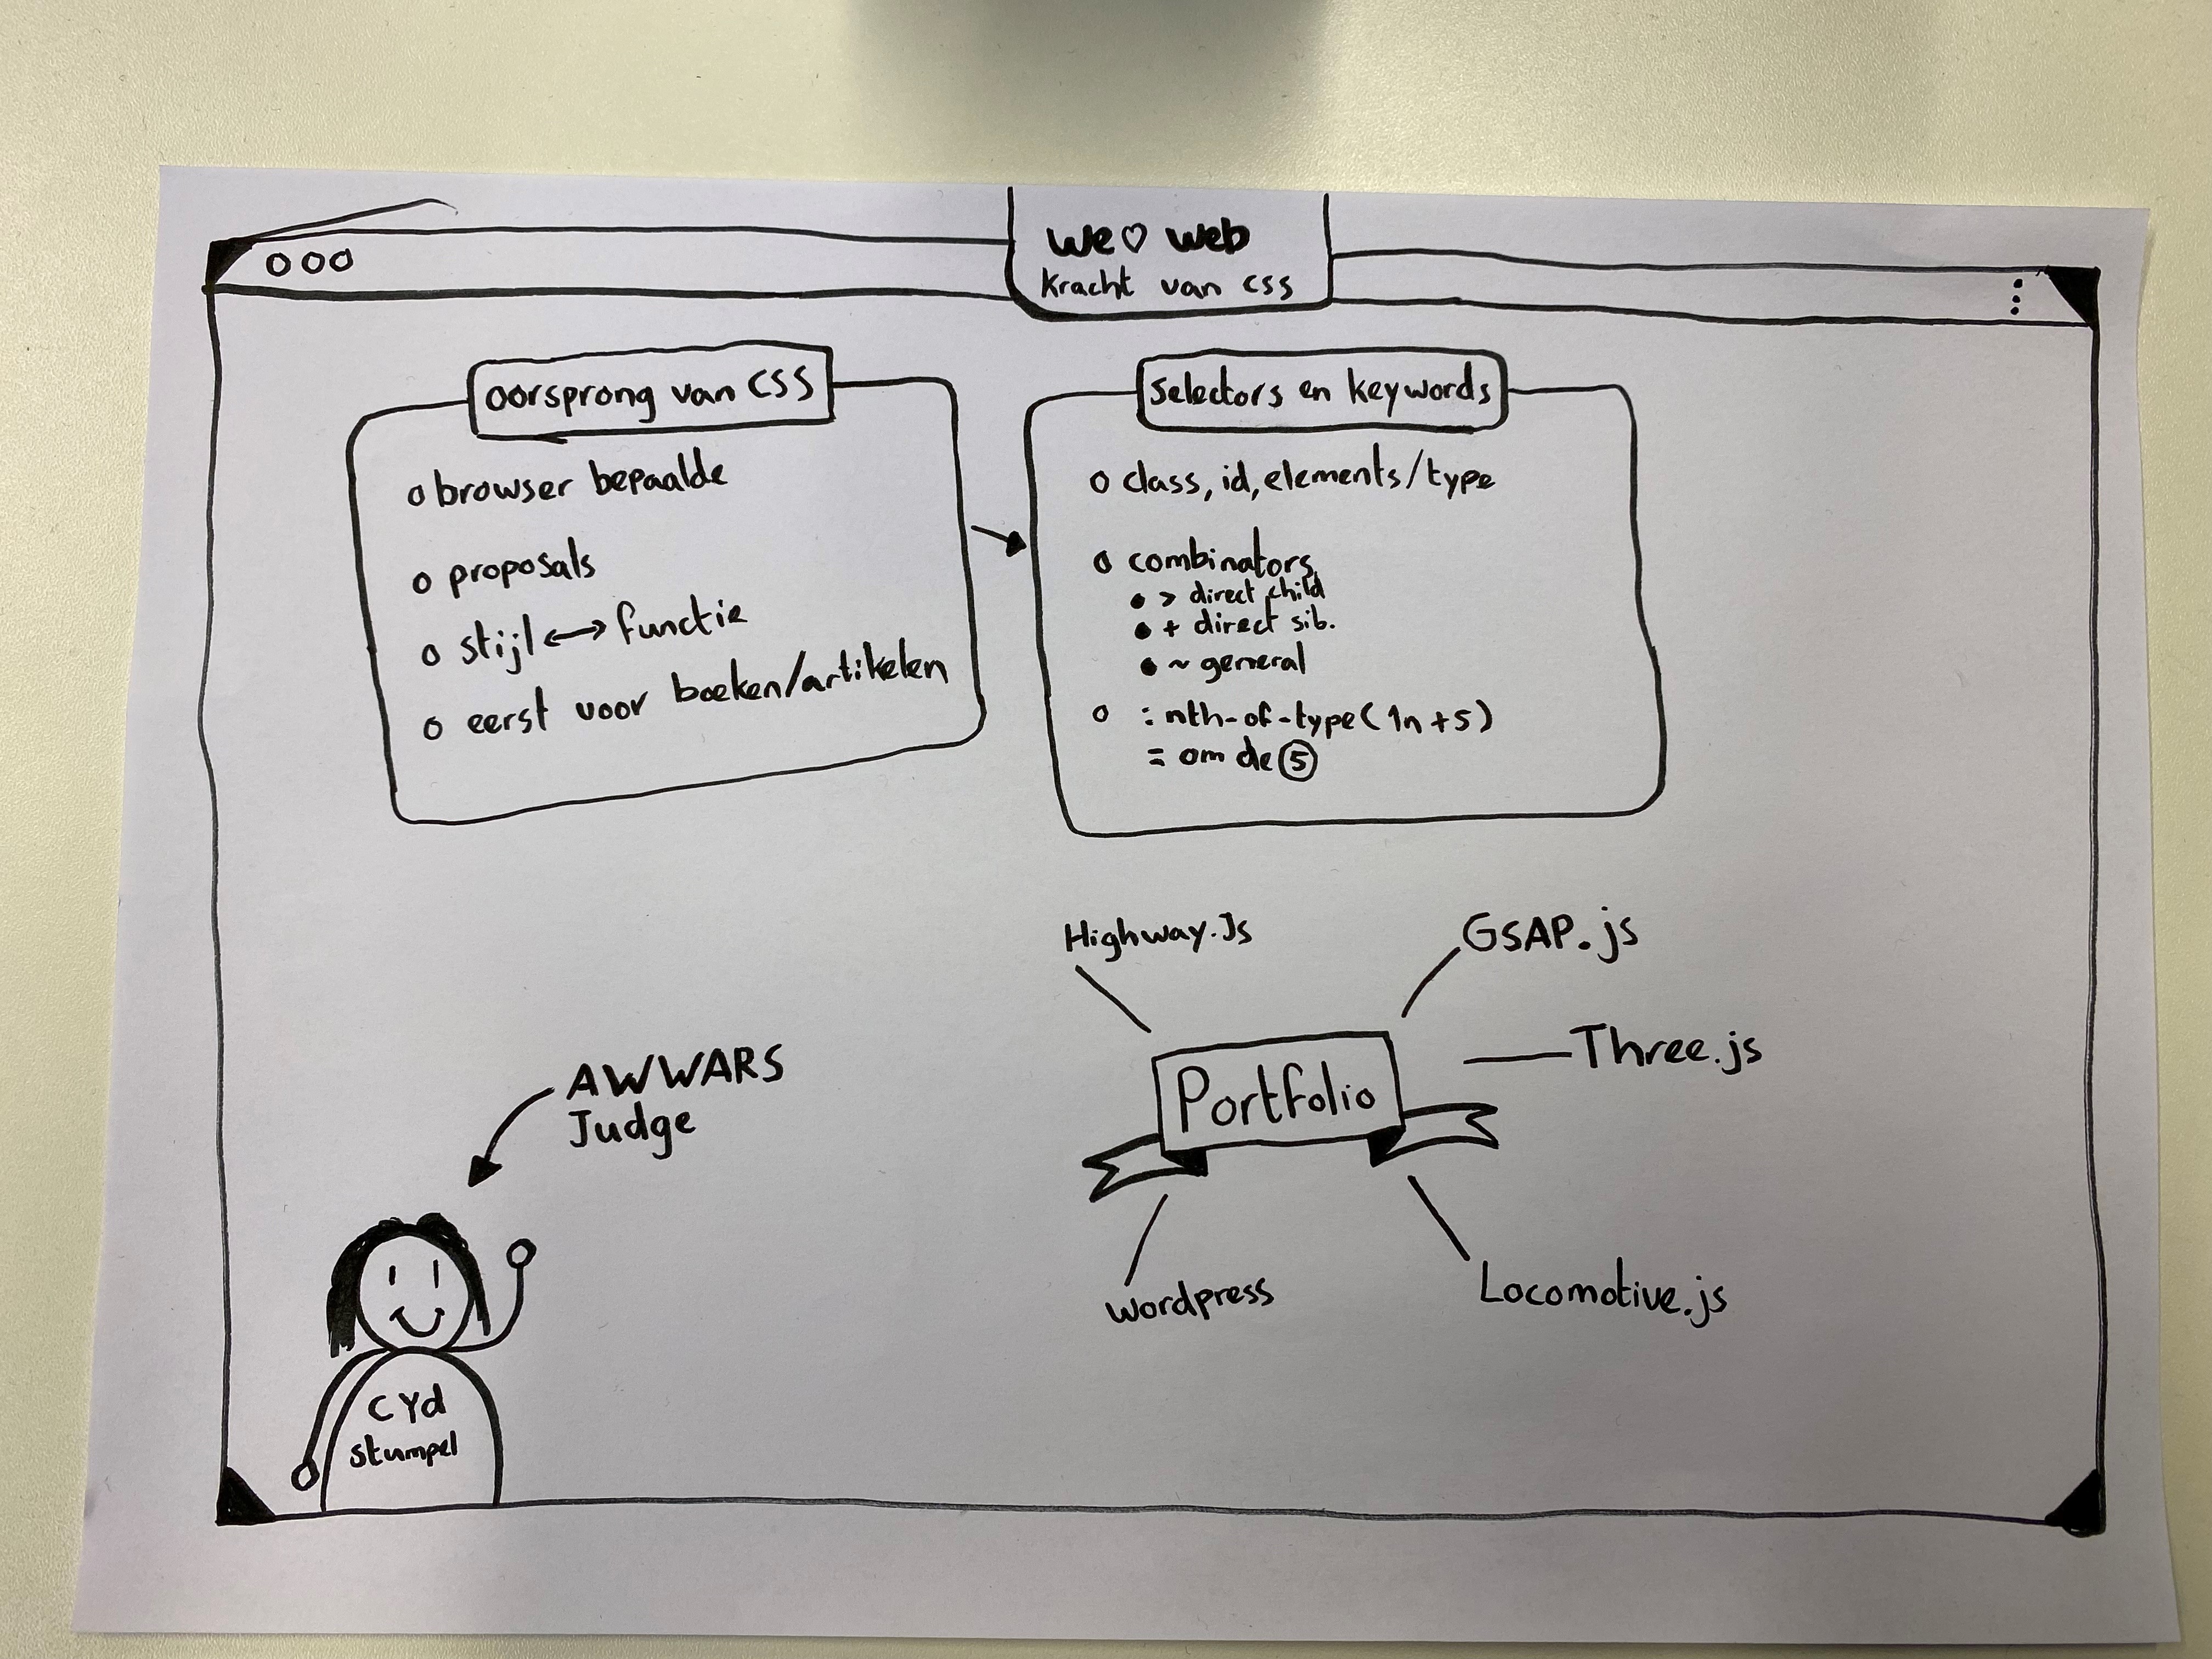 We ♡ web
Kracht van CSS
oorsprong van CSS
browser bepaalde
proposals
stijl ↔ functie
eerst voor boeken/artikelen
Selectors en keywords
class, id, elements/type
combinators
> direct child
+ direct sib.
~ general
: nth-of-type(1n+5)
= om de 5
Highway.Js
GSAP.js
Three.js
Portfolio
wordpress
Locomotive.js
AWWARS
Judge
CYd
stumpel